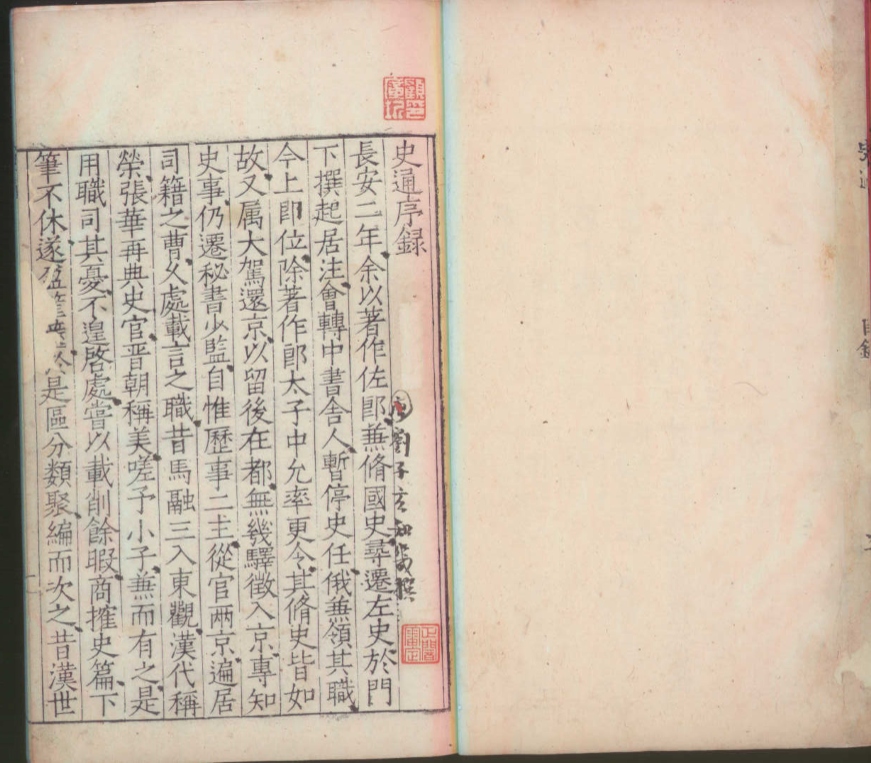 史通序録
唐劉子玄知幾撰
長安二年余以著作佐郎兼脩國史尋遷左史於門
下撰起居注會轉中書舍人暫停史任俄兼領其職
今上即位除著作郎太子中允率更令其脩史皆如
故又属大駕還京以留後在都無幾驛徵入京專知
史事仍遷秘書少監自惟歷事二主從官兩京遍居
司籍之曹久處載言之職昔馬融三入東觀漢代稱
榮張華再典史官晋朝稱美嗟予小子兼而有之是
用職司其憂不遑啓處嘗以載削餘暇商搉史篇下
筆不休遂盈是區分類聚編而次之昔漢世